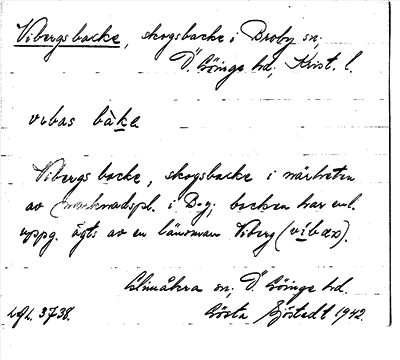 Vibergsbacke, skogsbacke i Broby sn;
Ö. Göinge hd, Krist. l.
vibas bàke
Vibergs backe, skogsbacke i närheten
av marknadspl. i B-y; backen har enl.
uppg. ägts av en länsman Viberg (vibær).
Glimåkra sn; Ö. Göinge hd.
Lfl. 3738. Gösta Sjöstedt 1942.